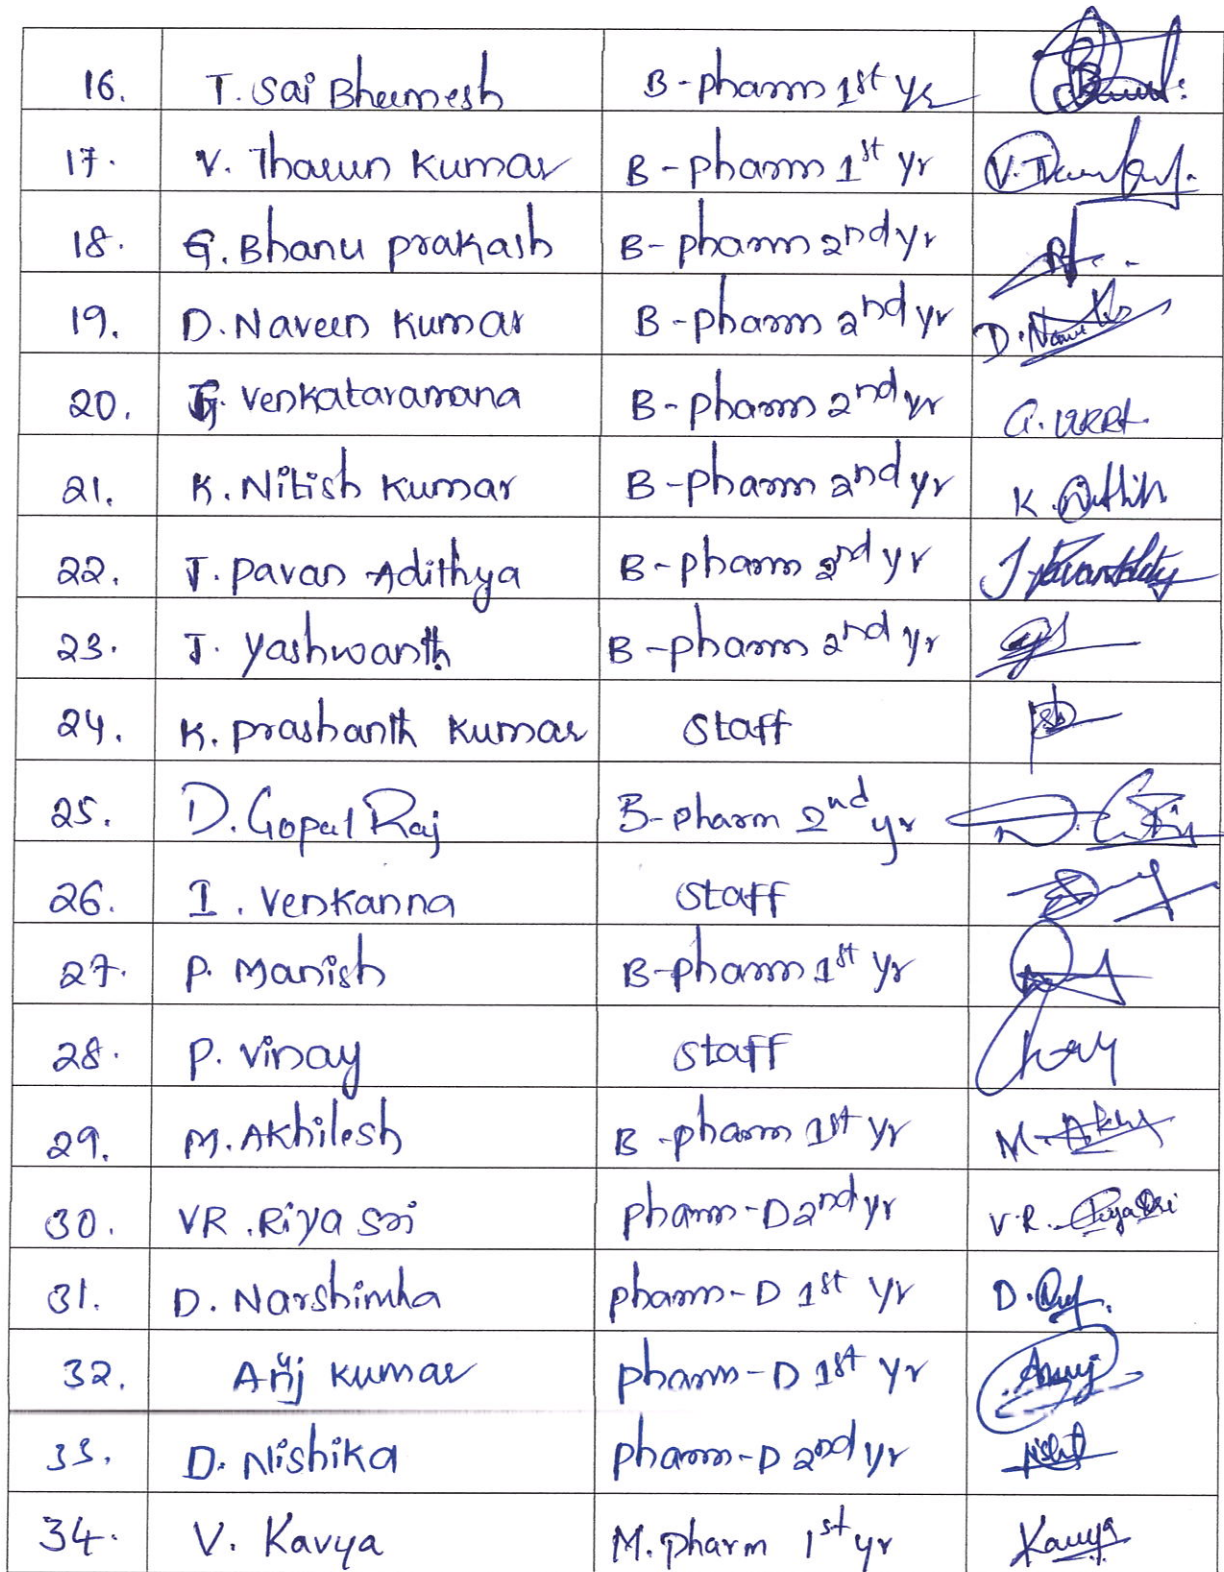 16. T. Sai Bheemesh B-pharm 1st yr
17. V. Tharun Kumar B-pharm 1st yr V. Tharun
18. G. Bhanu prakash B-pharm 2nd yr
19. D. Naveen Kumar B-pharm 2nd yr D. Naveen
20. G. Venkataramana B-pharm 2nd yr
21. K. Nitish Kumar B-pharm 2nd yr K. Nithish
22. J. Pavan Adithya B-pharm 2nd yr
23. J. Yashwanth B-pharm 2nd yr
24. K. Prashanth Kumar Staff
25. D. Gopal Raj B-pharm 2nd yr
26. I. Venkanna Staff
27. P. Manish B-pharm 1st yr
28. P. Vinay Staff
29. M. Akhilesh B-pharm 1st yr
30. VR. Riya Sri pharm-D 2nd yr V.R. Riya Sri
31. D. Narshimha pharm-D 1st yr
32. Anuj Kumar pharm-D 1st yr Anuj
33. D. Nishika pharm-D 2nd yr
34. V. Kavya M. Pharm 1st yr Kavya